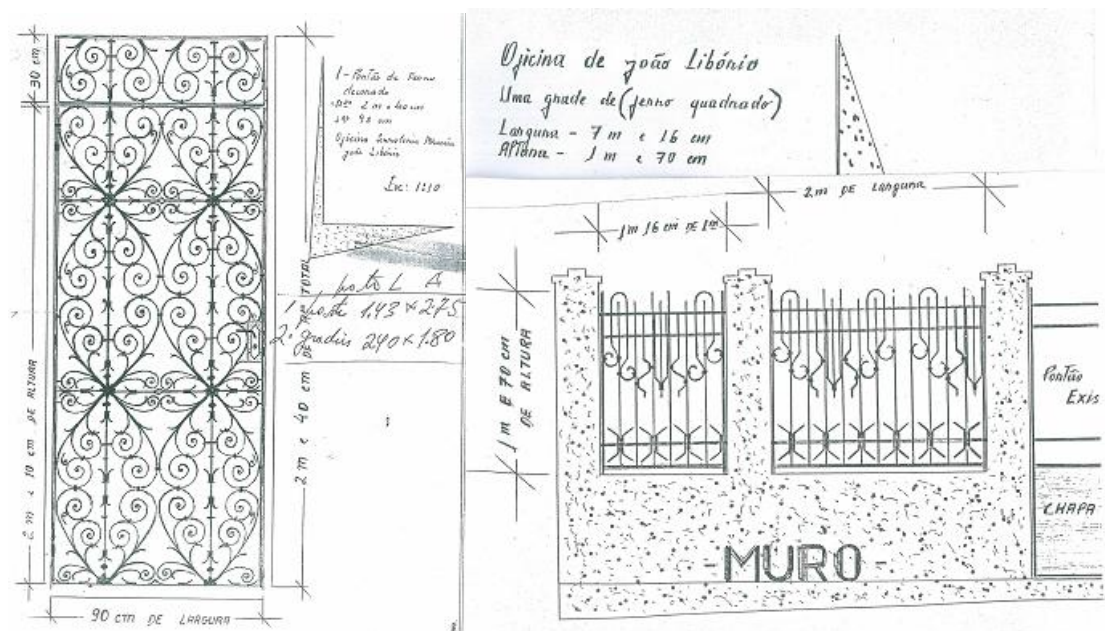 30 cm
2 m e 10 cm DE ALTURA
90 cm DE LARGURA
1 - Portão de Ferro
decorado
2 m e 40 cm
90 cm
Oficina Serralheria
joão Libório
Esc: 1:10
2 m e 40 cm DE TOTAL
L A
1 porta 1.43 x 2.75
2 gradis 240 x 1.80
Oficina de joão Libório
Uma grade de (ferro quadrado)
Largura - 7 m e 16 cm
Altura - 1 m e 70 cm
2 m DE Largura
1 m 16 cm DE
1 m E 70 cm
DE ALTURA
Portão
Exis
CHAPA
- MURO -